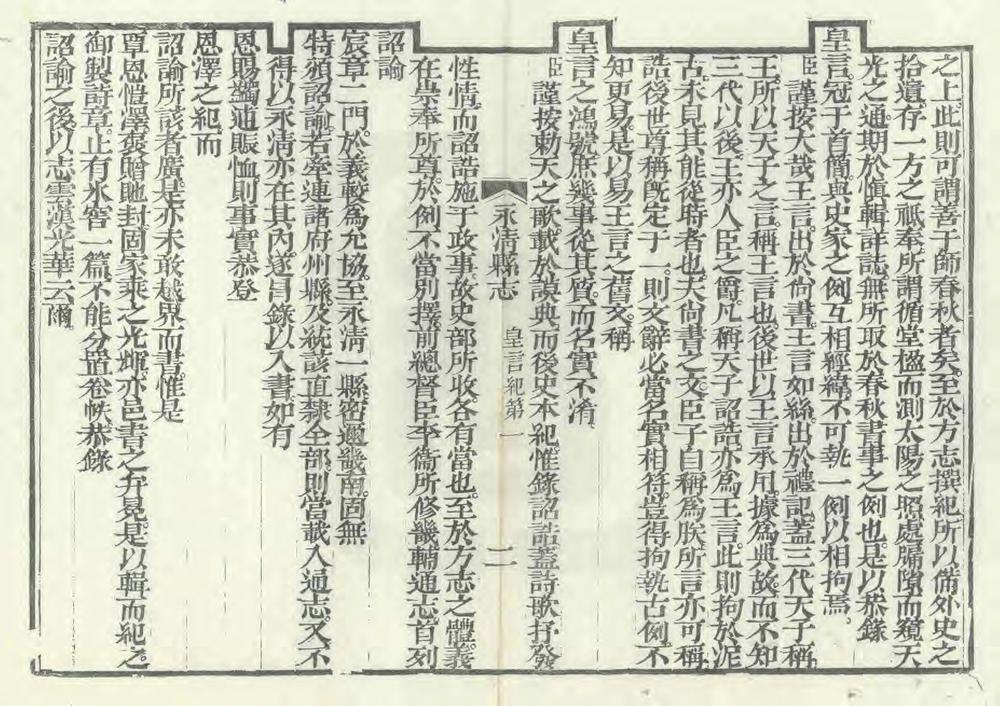 之上此則可謂善于師春秋者矣至於方志撰紀所以備外史之
拾遺存一方之祇奉所謂循堂楹而測太陽之照處牖隙而窺天
光之通期於愼輯詳誌無所取於春秋書事之例也是以恭錄
皇言冠于首簡與史家之例互相經緯不可執一例以相拘焉
臣謹按大哉王言出於尙書王言如絲出於禮記蓋三代天子稱
王所以天子之言稱王言也後世以王言承用據爲典故而不知
三代以後王亦人臣之爵凡稱天子詔誥亦爲王言此則拘於泥
古未見其能從時者也夫尙書之文臣子自稱爲朕所言亦可稱
誥後世尊稱旣定于一則文辭必當名實相符豈得拘執古例不
知更易是以易王言之舊文稱
皇言之鴻號庶幾事從其質而名實不淆
臣謹按勅天之歌載於謨典而後史本紀惟錄詔誥蓋詩歌抒發
永淸縣志 皇言紀第一 二
性情而詔誥施于政事故史部所收各有當也至於方志之體義
在崇奉所尊於例不當別擇前總督臣李衞所修畿輔通志首列
詔諭
宸章二門於義較爲允協至永淸一縣密邇畿南固無
特頒詔諭若牽連諸府州縣及統該直隸全部則當載入通志又不
得以永淸亦在其內遂冒錄以入書如有
恩賜蠲逋賑恤則事實恭登
恩澤之紀而
詔諭所該者廣是亦未敢越界而書惟是
覃恩愷澤褒贈貤封固家乘之光輝亦邑書之弁冕是以輯而紀之
御製詩章止有氷窖一篇不能分置卷帙恭錄
詔諭之後以志雲漢光華云爾